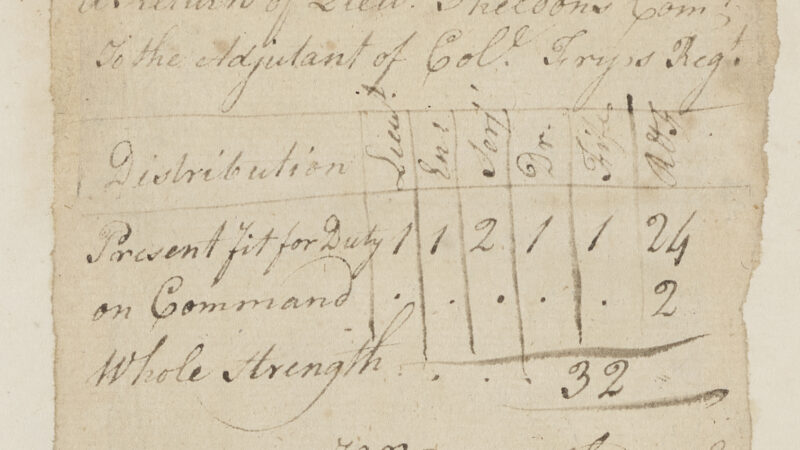 a Return of Lieu. Sheldons Com.
To the Adjutant of Col.d Fry,s Reg.t
Distribution Lieu.t Ens Serj.t Dr. Fife R&F
Present fit for Duty 1 1 2 1 1 24
on Command . . . . . 2
Whole Strength . . . . 32